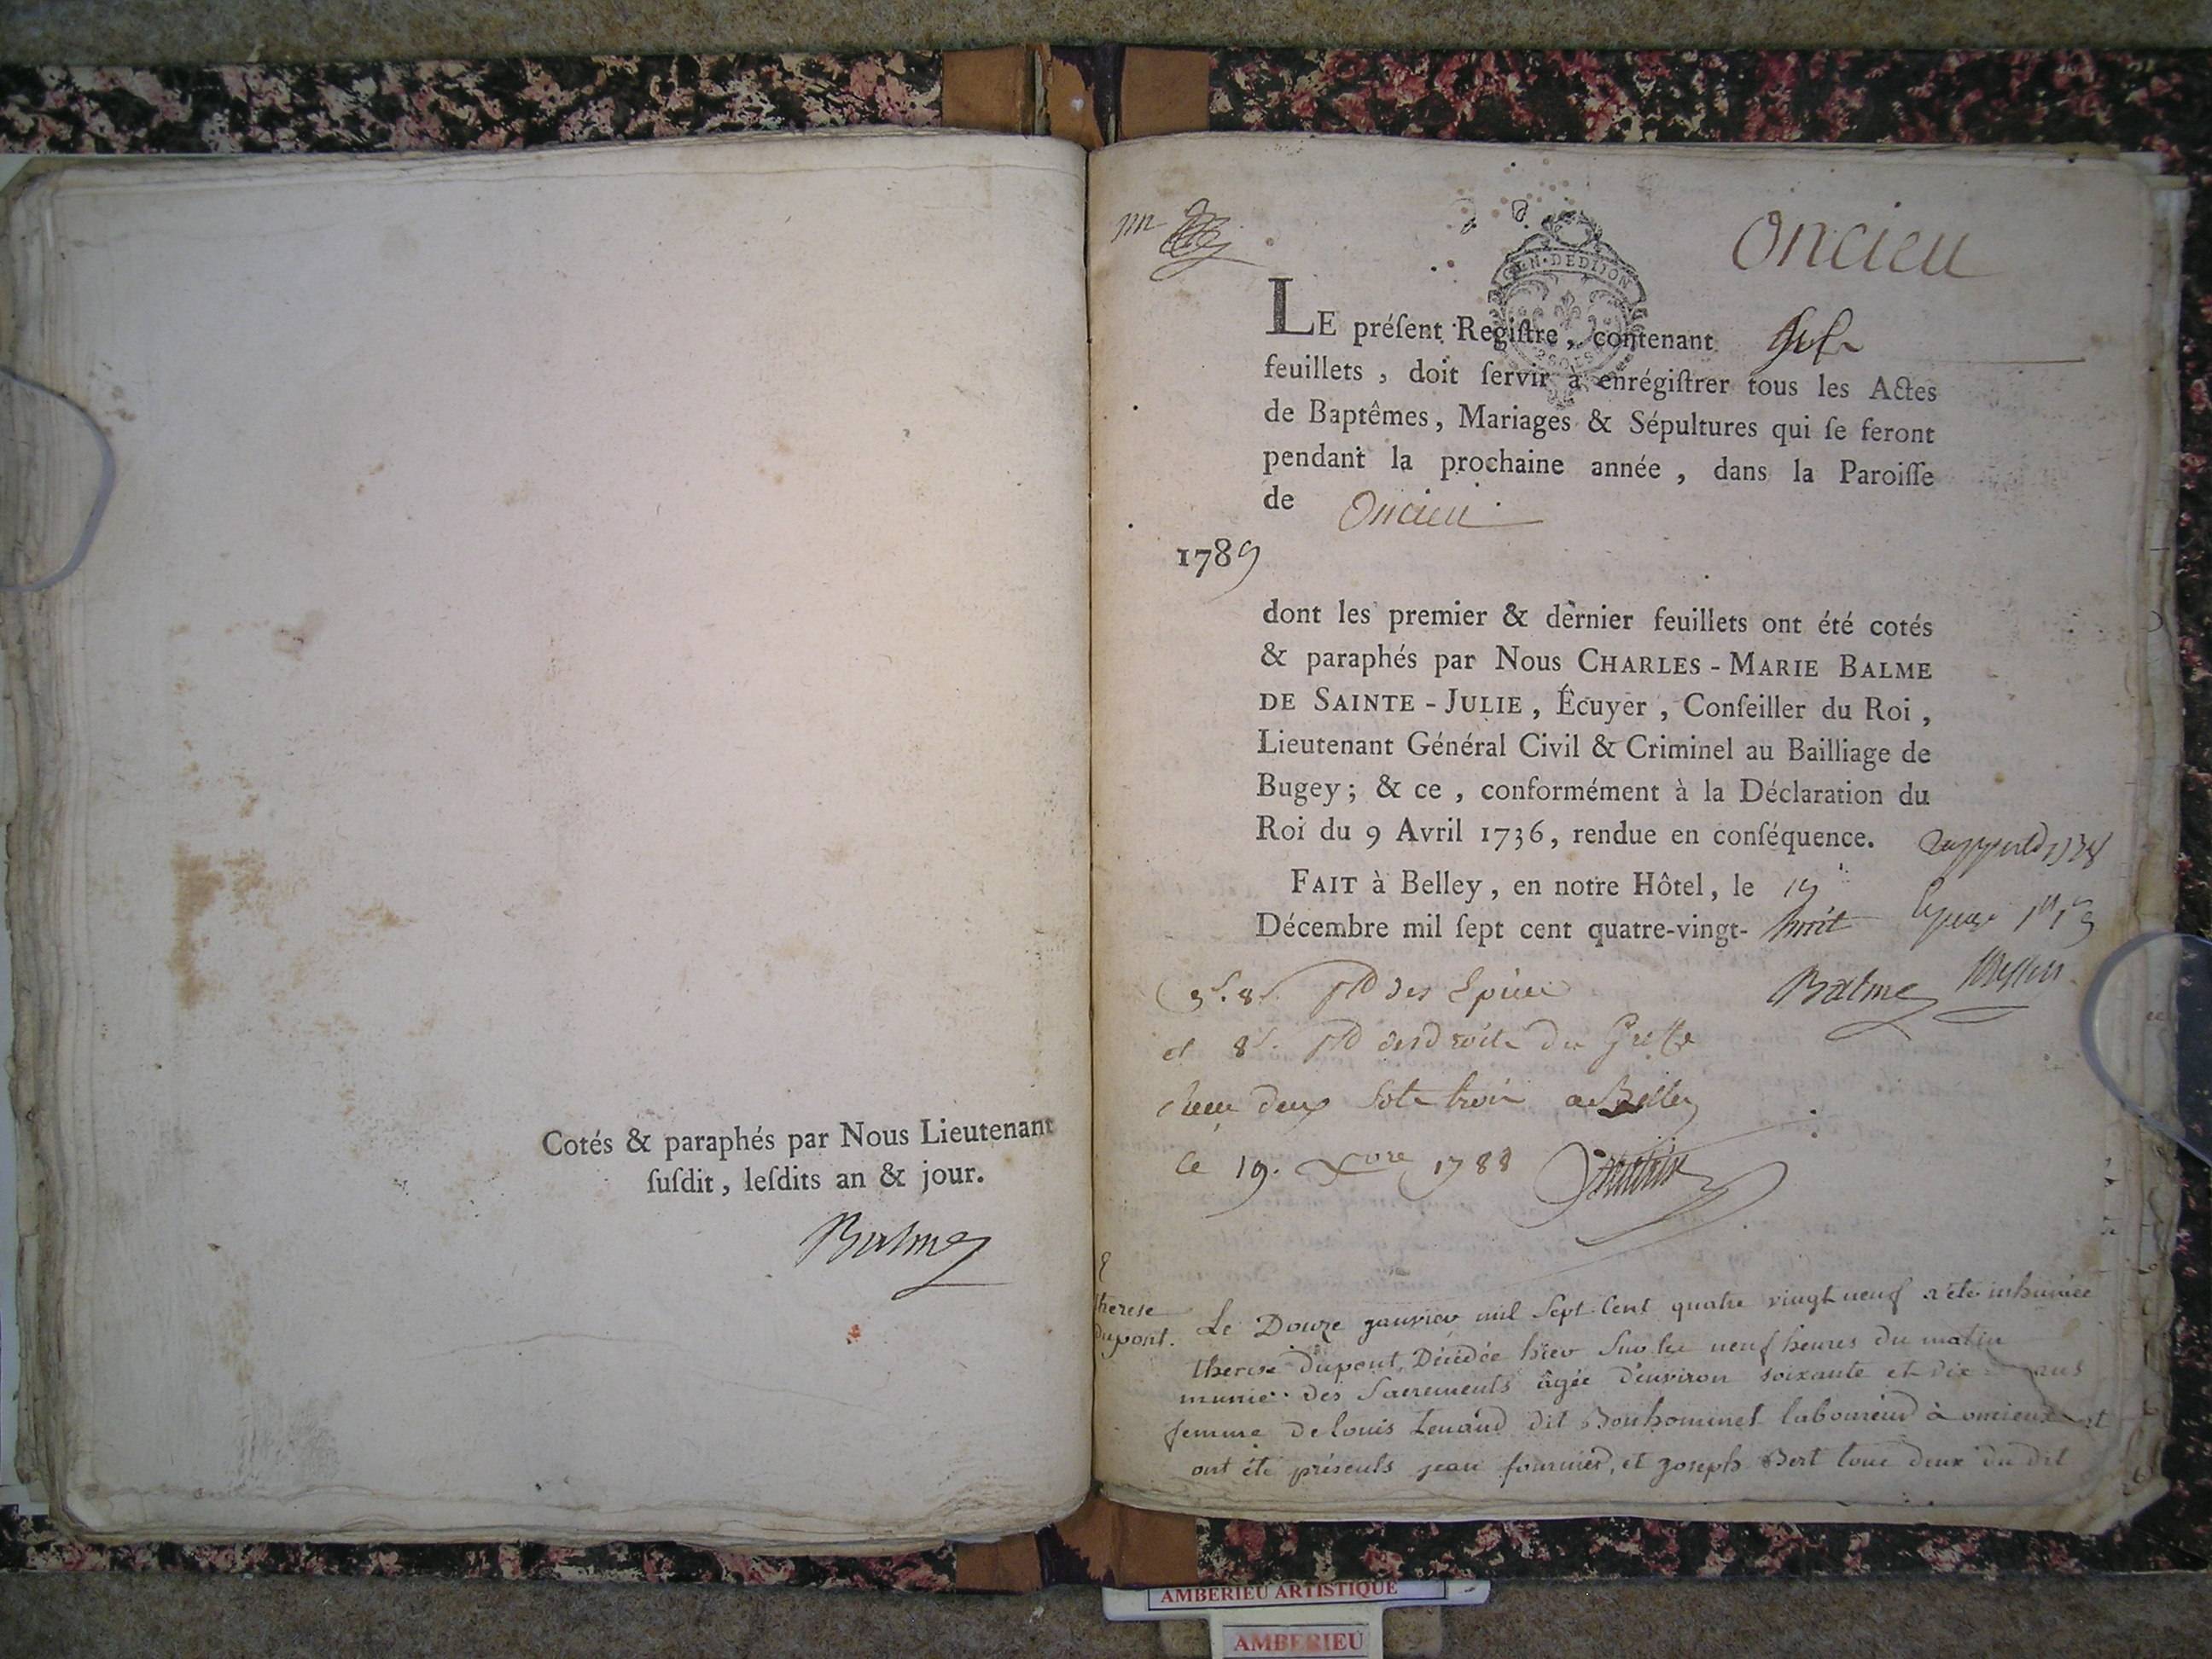 Cotés & paraphés par Nous Lieutenant
ſuſdit, leſdits an & jour.
Balme
Oncieu
GEN. DE DIJON
LE préſent Regiſtre, contenant
feuillets, doit ſervir à enrégiſtrer tous les Actes
de Baptêmes, Mariages & Sépultures qui ſe feront
pendant la prochaine année, dans la Paroiſſe
de Oncieu
1789
dont les premier & dernier feuillets ont été cotés
& paraphés par Nous CHARLES-MARIE BALME
DE SAINTE-JULIE, Écuyer, Conſeiller du Roi,
Lieutenant Général Civil & Criminel au Bailliage de
Bugey; & ce, conformément à la Déclaration du
Roi du 9 Avril 1736, rendue en conſéquence.
FAIT à Belley, en notre Hôtel, le 19
Décembre mil ſept cent quatre-vingt-huit
Balme
des Epices
et 8ˢ. des droits du Greffe
deux sols trois a Belley
Ce 19. Xbre 1788
therese
Dupont.
Le Douze janvier mil Sept Cent quatre vingt neuf a été inhumée
therese Dupont, Décédée hier Sur les neuf heures du matin
munie des Sacrements âgée d'environ soixante et dix ans
femme de louis tenand dit Bonhominet laboureur à oncieux et
ont été présents jean fournier, et joseph Bert tous deux du dit
AMBERIEU ARTISTIQUE
AMBERIEU